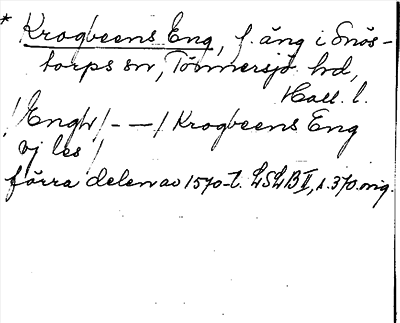 * Krogbeens Eng, f. äng i Snös-
torps sn, Tönnersjö hd,
Hall. l.
/Engh/ - - / Krogbeens Eng
vj les /
förra delen av 1570-t. LSLB II, s. 370. orig.